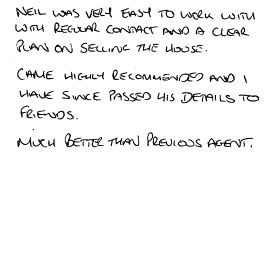 NEIL WAS VERY EASY TO WORK WITH
WITH REGULAR CONTACT AND A CLEAR
PLAN ON SELLING THE HOUSE.
CAME HIGHLY RECOMMENDED AND I
HAVE SINCE PASSED HIS DETAILS TO
FRIENDS.
MUCH BETTER THAN PREVIOUS AGENT.